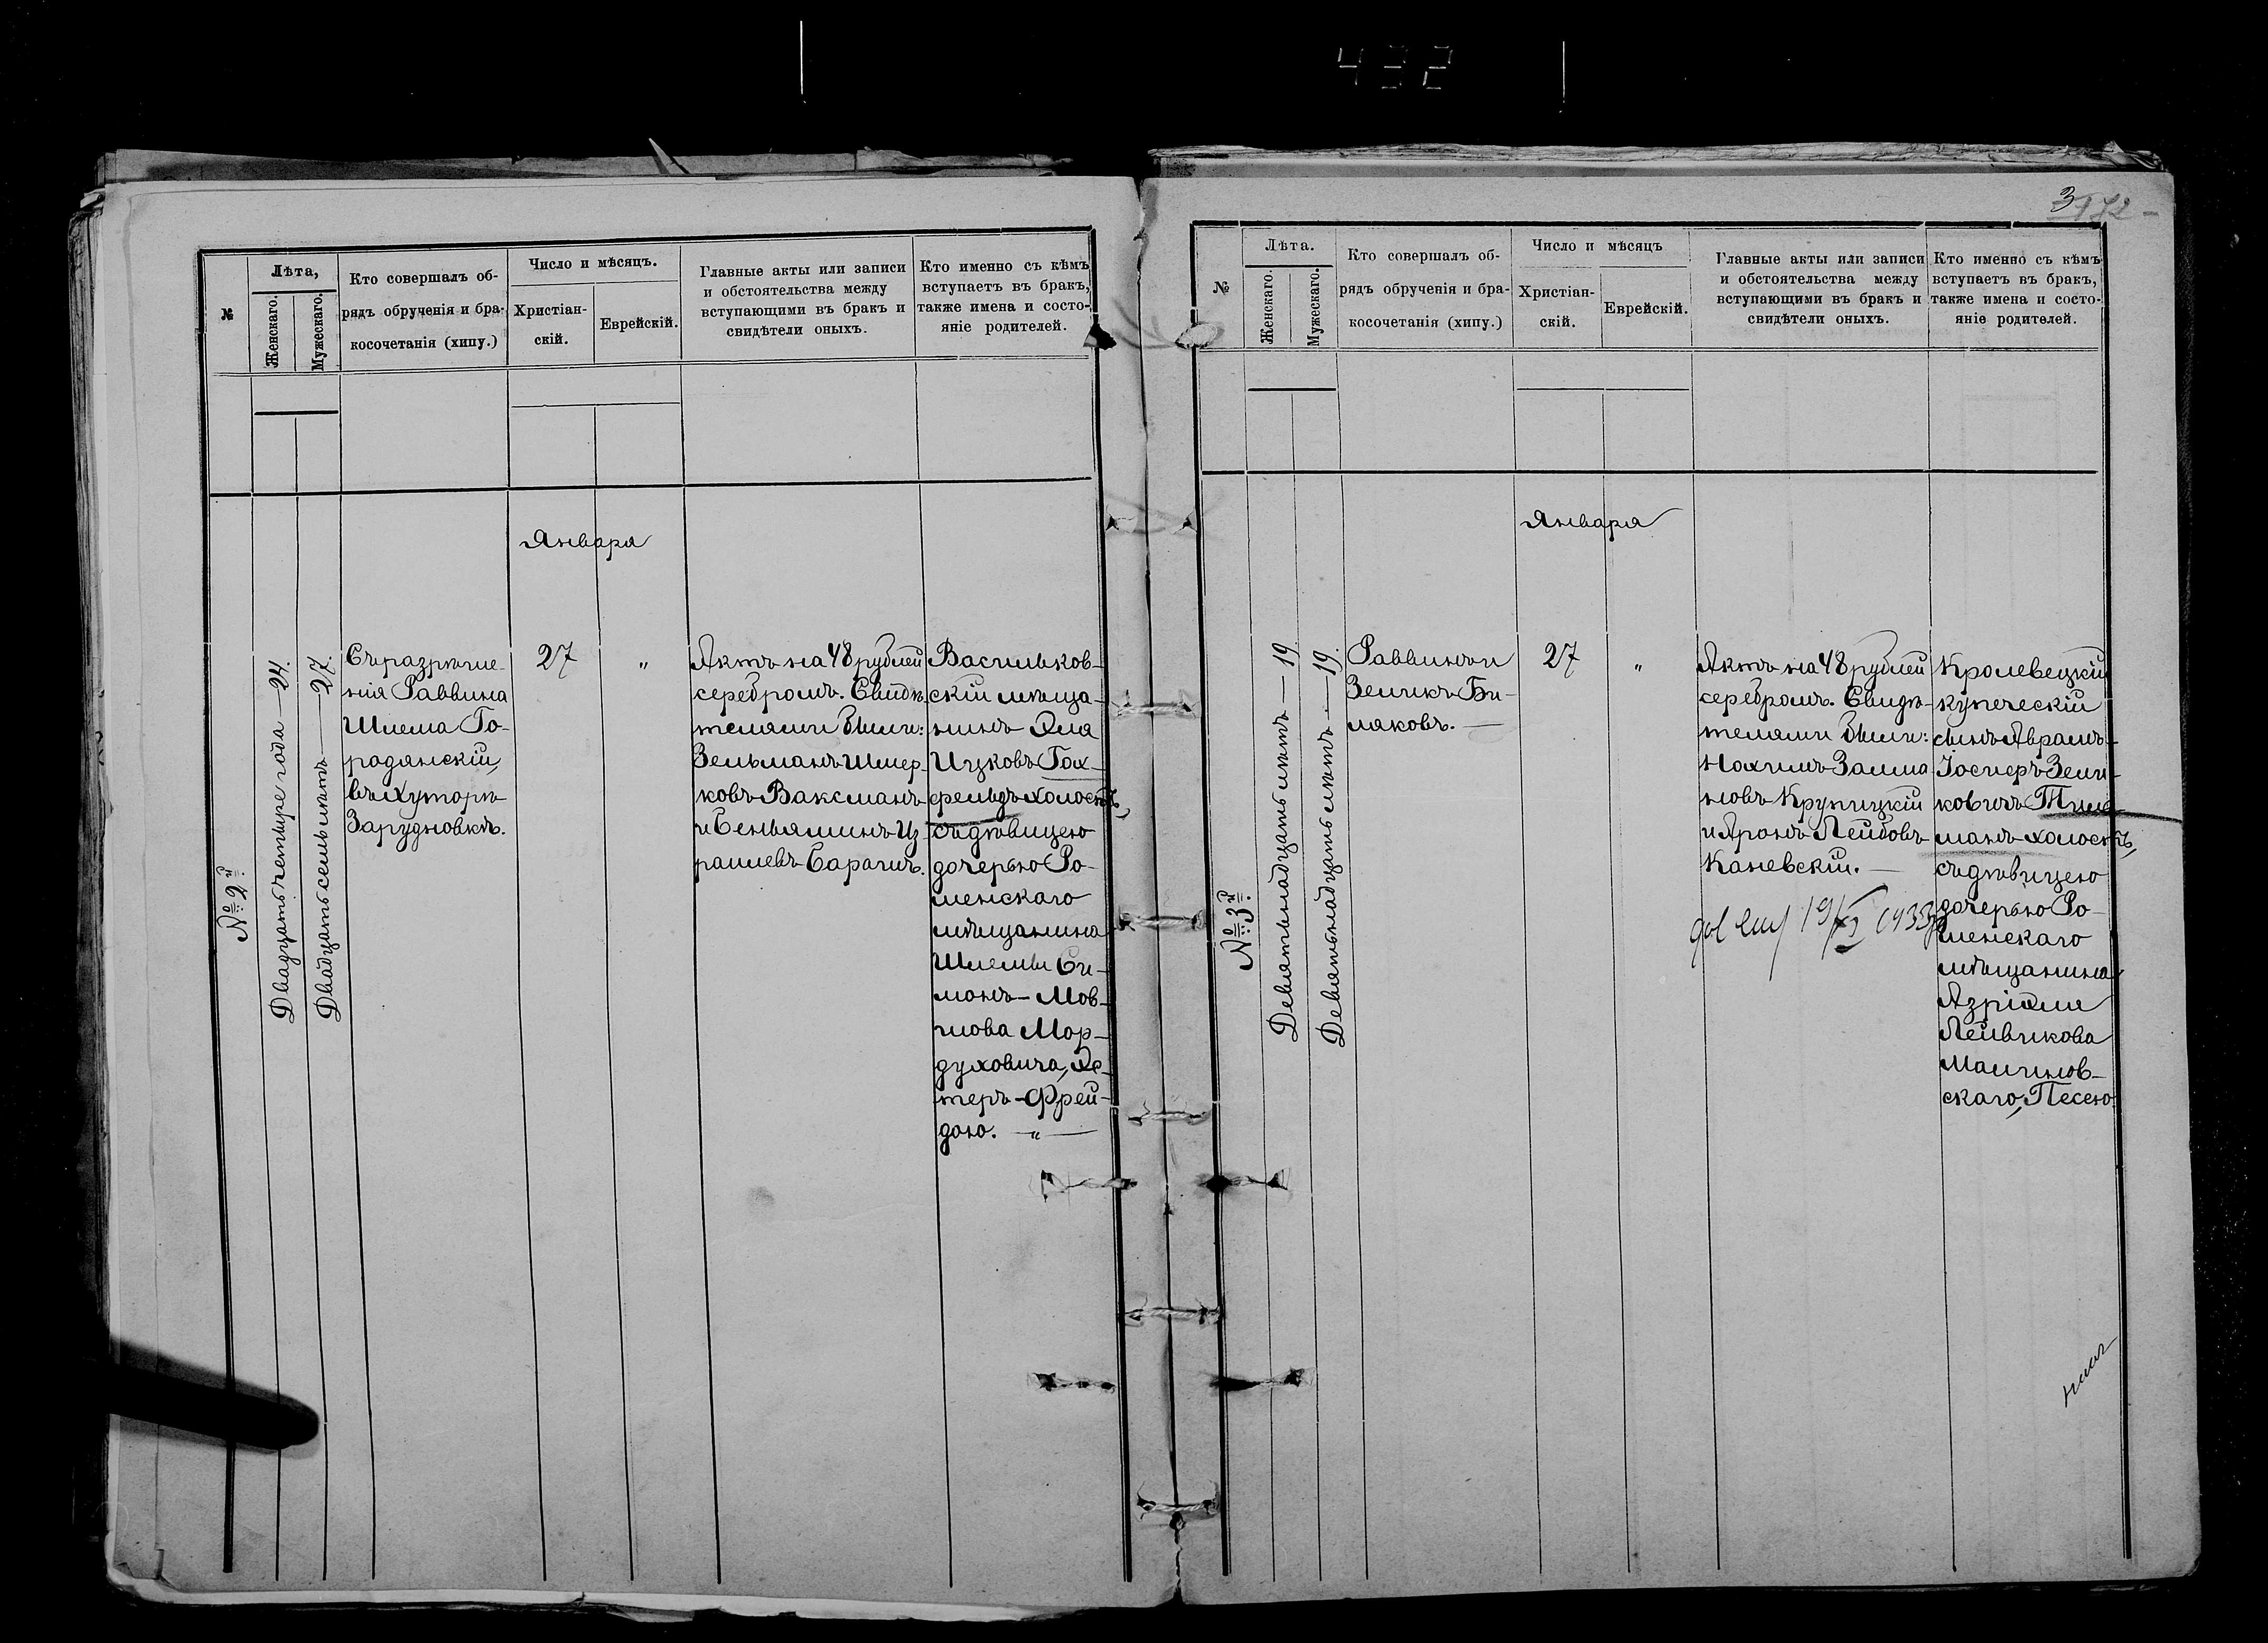 432
№
Лѣта,
Женскаго.
Мужескаго.
Кто совершалъ об-
рядъ обрученія и бра-
косочетанія (хипу.)
Число и мѣсяцъ.
Христіан-
скій.
Еврейскій.
Главные акты или записи
и обстоятельства между
вступающими въ бракъ и
свидѣтели оныхъ.
Кто именно съ кѣмъ
вступаетъ въ бракъ,
также имена и состо-
яніе родителей.
Января
№ 2й
Двадцать четыре года — 24.
Двадцать семь лѣтъ — 27.
Съ разрѣше-
нія Раввина
Шлема Го-
родянскій,
въ Хуторѣ
Зарудновкѣ.
27
"
Актъ на 48 рублей
серебромъ. Свидѣ-
телями были:
Зельманъ Шмер-
ковъ Ваксманъ
и Беньяминъ Из-
раилевъ Сарачикъ.
Васильков-
скій мѣща-
нинъ Эля
Ицковъ Гох-
фельдъ холостъ,
съ дѣвицею
дочерью Ро-
менскаго
мѣщанина
Шлемы Си-
монъ-Мов-
шова Мор-
духовича, Эс-
теръ-Фрей-
дою. — " —
3
172 -
№
Лѣта.
Женскаго.
Мужескаго.
Кто совершалъ об-
рядъ обрученія и бра-
косочетанія (хипу.)
Число и мѣсяцъ
Христіан-
скій.
Еврейскій.
Главные акты или записи
и обстоятельства между
вступающими въ бракъ и
свидѣтели оныхъ.
Кто именно съ кѣмъ
вступаетъ въ бракъ,
также имена и состо-
яніе родителей.
Января
№ 3й
Девятьнадцать лѣтъ — 19
Девятьнадцать лѣтъ — 19.
Раввинъ
Зеликъ Би-
ляковъ. —
27
"
Актъ на 48 рублей
серебромъ. Свидѣ-
телями были:
Нохимъ Залма-
новъ Крупицкій
и Аронъ Лейбовъ
Каневскій. —
Кролевецкій
купеческій
сынъ Аврамъ-
Іосперъ Зели-
ковичъ
манъ холостъ,
съ дѣвицею
дочерью Ро-
менскаго
мѣщанина
Азріэли
Лейвикова
Малинов-
скаго, Песею